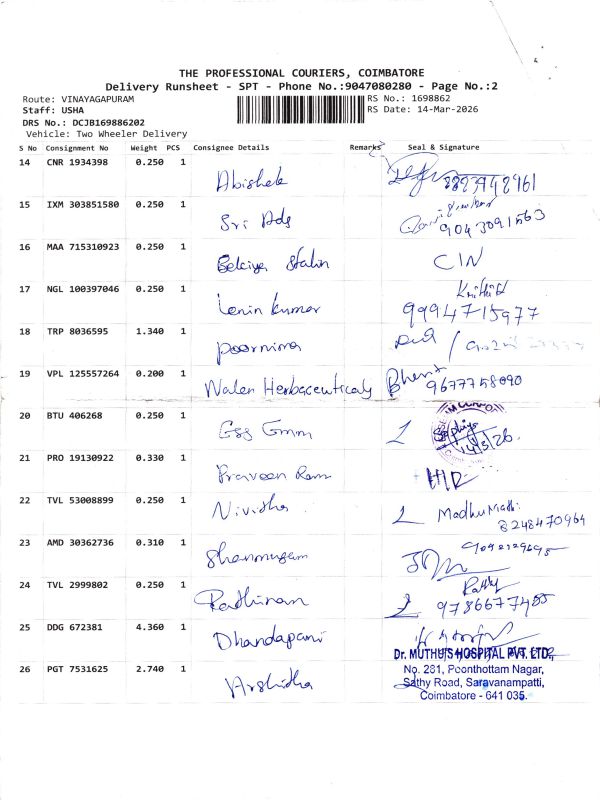 THE PROFESSIONAL COURIERS, COIMBATORE
Delivery Runsheet - SPT - Phone No.:9047080280 - Page No.:2
Route: VINAYAGAPURAM RS No.: 1698862
Staff: USHA RS Date: 14-Mar-2026
DRS No.: DCJB169886202
Vehicle: Two Wheeler Delivery
S No Consignment No Weight PCS Consignee Details Remarks Seal & Signature
14 CNR 1934398 0.250 1 Abishek
15 IXM 303851580 0.250 1 Sri Ads 9043091563
16 MAA 715310923 0.250 1 Stalin CIN
17 NGL 100397046 0.250 1 Lenin kumar 9994715977
18 TRP 8036595 1.340 1 poornima
19 VPL 125557264 0.200 1 Walen Herbaceuticaly Bharat 9677758090
20 BTU 406268 0.250 1 14/3/26.
21 PRO 19130922 0.330 1 Praveen Ram H/R
22 TVL 53008899 0.250 1 Nivisha Madhumathi
8248470964
23 AMD 30362736 0.310 1 Shanmugam
24 TVL 2999802 0.250 1 Rathinam 9786677455
25 DDG 672381 4.360 1 Dhandapani
Dr. MUTHU'S HOSPITAL PVT. LTD.,
26 PGT 7531625 2.740 1 Arshitha No. 281, Poonthottam Nagar,
Sathy Road, Saravanampatti,
Coimbatore - 641 035.